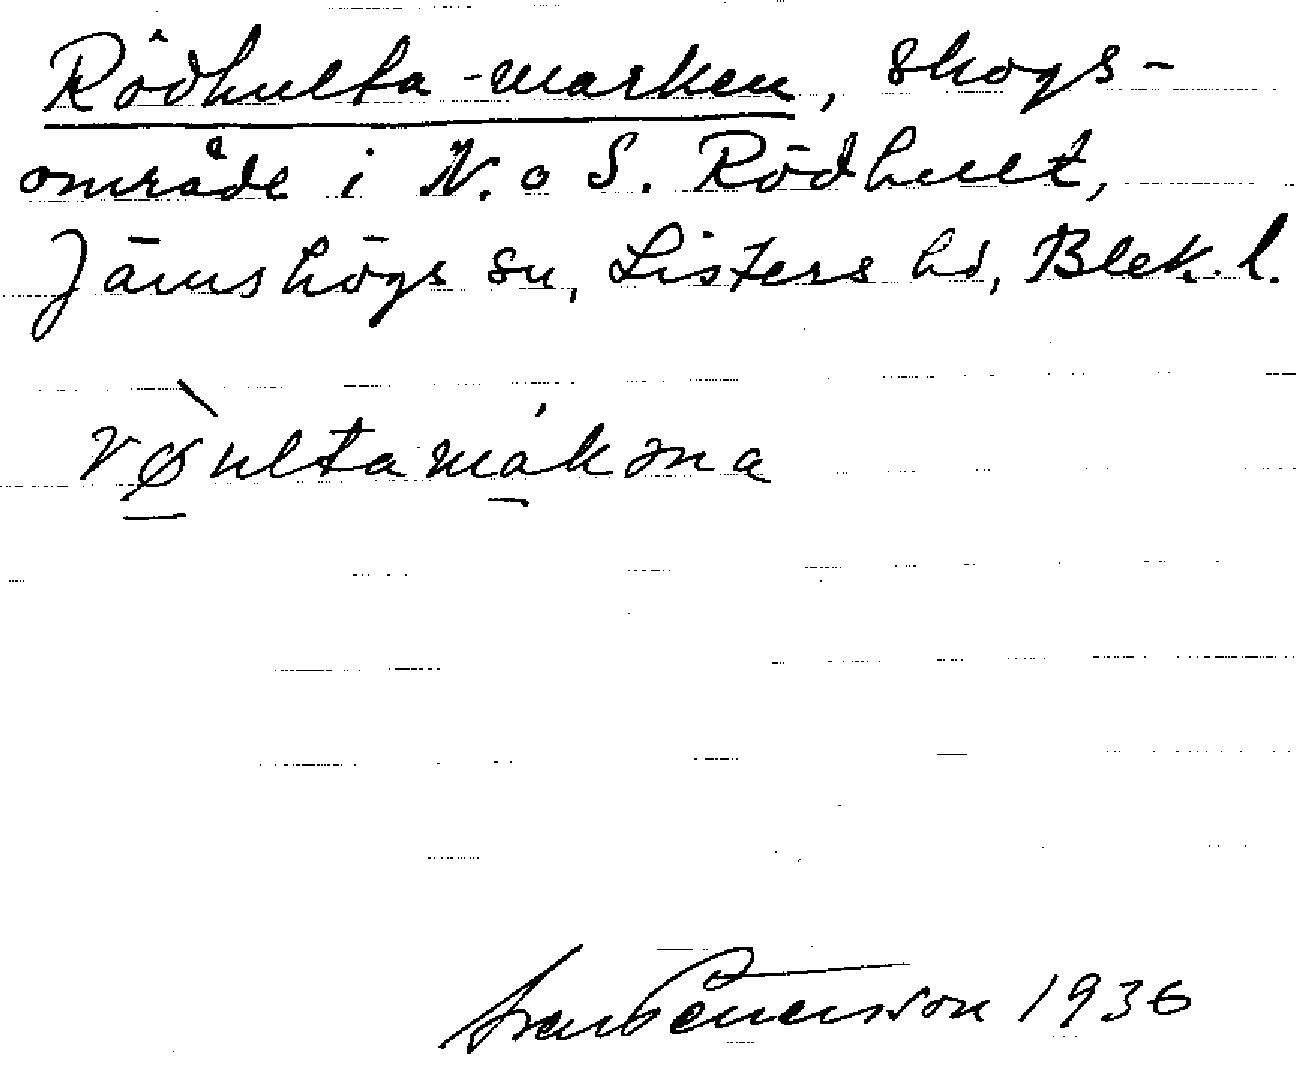 Rödhulta-marken, skogs-
område i N. o S. Rödhult,
Jämshögs sn, Listers hd, Blek. l.
Sven Benson 1936